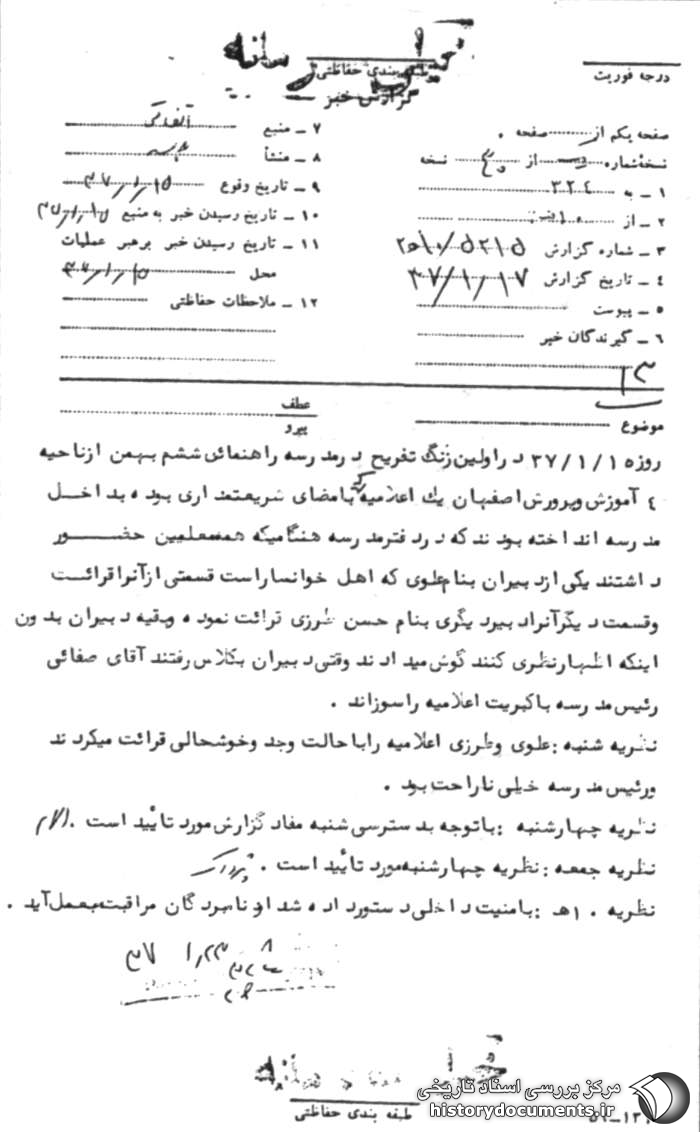 خیلی محرمانه
طبقه بندی حفاظتی
گزارش خبر
درجه فوریت
صفحه یکم از صفحه
نسخه شماره از نسخه
۱ - به ۳۲۴
۲ - از ۱۰
۳ - شماره گزارش
۴ - تاریخ گزارش ۳۷/۱/۱۷
۵ - پیوست
۶ - گیرندگان خبر
۷ - منبع
۸ - منشأ
۹ - تاریخ وقوع ۳۷/۱/۱۵
۱۰ - تاریخ رسیدن خبر به منبع ۳۷/۱/۱۵
۱۱ - تاریخ رسیدن خبر برهبر عملیات
محل ۳۷/۱/۱۵
۱۲ - ملاحظات حفاظتی
موضوع
عطف
پیرو
روز ۳۷/۱/۱۵ در اولین زنگ تفریح در مدرسه راهنمائی ششم بهمن از ناحیه
۴ آموزش و پرورش اصفهان یك اعلامیه که با مضای شریعتمداری بوده بداخل
مدرسه انداخته بودند که در دفتر مدرسه هنگامیکه همه معلمین حضور
داشتند یکی از دبیران بنام علوی که اهل خوانسار است قسمتی از آنرا قرائت
وقسمت دیگر آنرا دبیر دیگری بنام حسن طرزی قرائت نموده وبقیه دبیران بدون
اینکه اظهار نظری کنند گوش میدادند وقتی دبیران بکلاس رفتند آقای صفائی
رئیس مدرسه باکبریت اعلامیه را سوزاند .
نظریه شنبه : علوی وطرزی اعلامیه را باحالت وجد وخوشحالی قرائت میکردند
ورئیس مدرسه خیلی ناراحت بود .
نظریه چهارشنبه : باتوجه بدسترسی شنبه مفاد گزارش مورد تأیید است .
نظریه جمعه : نظریه چهارشنبه مورد تأئید است .
نظریه ۱۰ھ : بامنیت داخلی دستور داده شد از نامبردگان مراقبت بعمل آید .
۳۷
خیلی محرمانه
طبقه بندی حفاظتی
مرکز بررسی اسناد تاریخی
historydocuments.ir